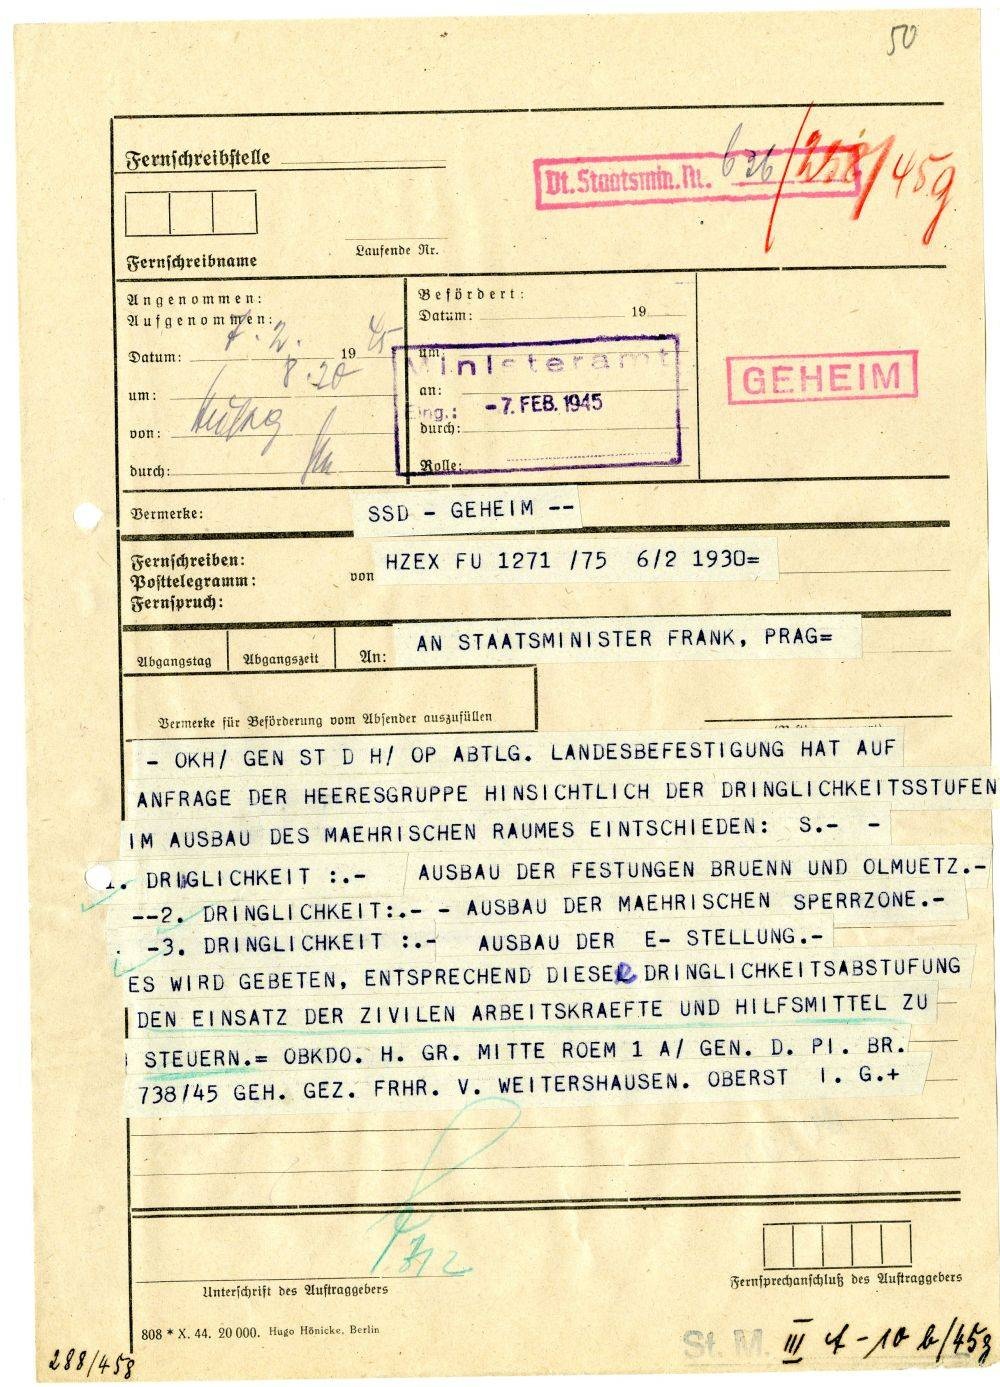 50
Fernschreibstelle
Dt. Staatsmin. Nr. 636/288/45g
Fernschreibname
Laufende Nr.
Angenommen:
Aufgenommen:
Datum: 7.2. 19 45
um: 8.20
von:
durch:
Befördert:
Datum: 19
um:
an:
durch:
Rolle:
Ministeramt
Eing.: -7. FEB. 1945
GEHEIM
Vermerke: SSD - GEHEIM --
Fernschreiben:
Posttelegramm:
Fernspruch:
von HZEX FU 1271 /75 6/2 1930=
Abgangstag
Abgangszeit
An: AN STAATSMINISTER FRANK, PRAG=
Vermerke für Beförderung vom Absender auszufüllen
- OKH/ GEN ST D H/ OP ABTLG. LANDESBEFESTIGUNG HAT AUF
ANFRAGE DER HEERESGRUPPE HINSICHTLICH DER DRINGLICHKEITSSTUFEN
IM AUSBAU DES MAEHRISCHEN RAUMES EINTSCHIEDEN: S.- -
1. DRIGLICHKEIT :.- AUSBAU DER FESTUNGEN BRUENN UND OLMUETZ.-
--2. DRINGLICHKEIT:.- - AUSBAU DER MAEHRISCHEN SPERRZONE.-
-3. DRINGLICHKEIT :.- AUSBAU DER E- STELLUNG.-
ES WIRD GEBETEN, ENTSPRECHEND DIESER DRINGLICHKEITSABSTUFUNG
DEN EINSATZ DER ZIVILEN ARBEITSKRAEFTE UND HILFSMITTEL ZU
STEUERN.= OBKDO. H. GR. MITTE ROEM 1 A/ GEN. D. PI. BR.
738/45 GEH. GEZ. FRHR. V. WEITERSHAUSEN. OBERST I. G.+
Unterschrift des Auftraggebers
Fernsprechanschluß des Auftraggebers
808 * X. 44. 20 000. Hugo Hönicke, Berlin
288/45g
St. M. III A - 10 b/45g